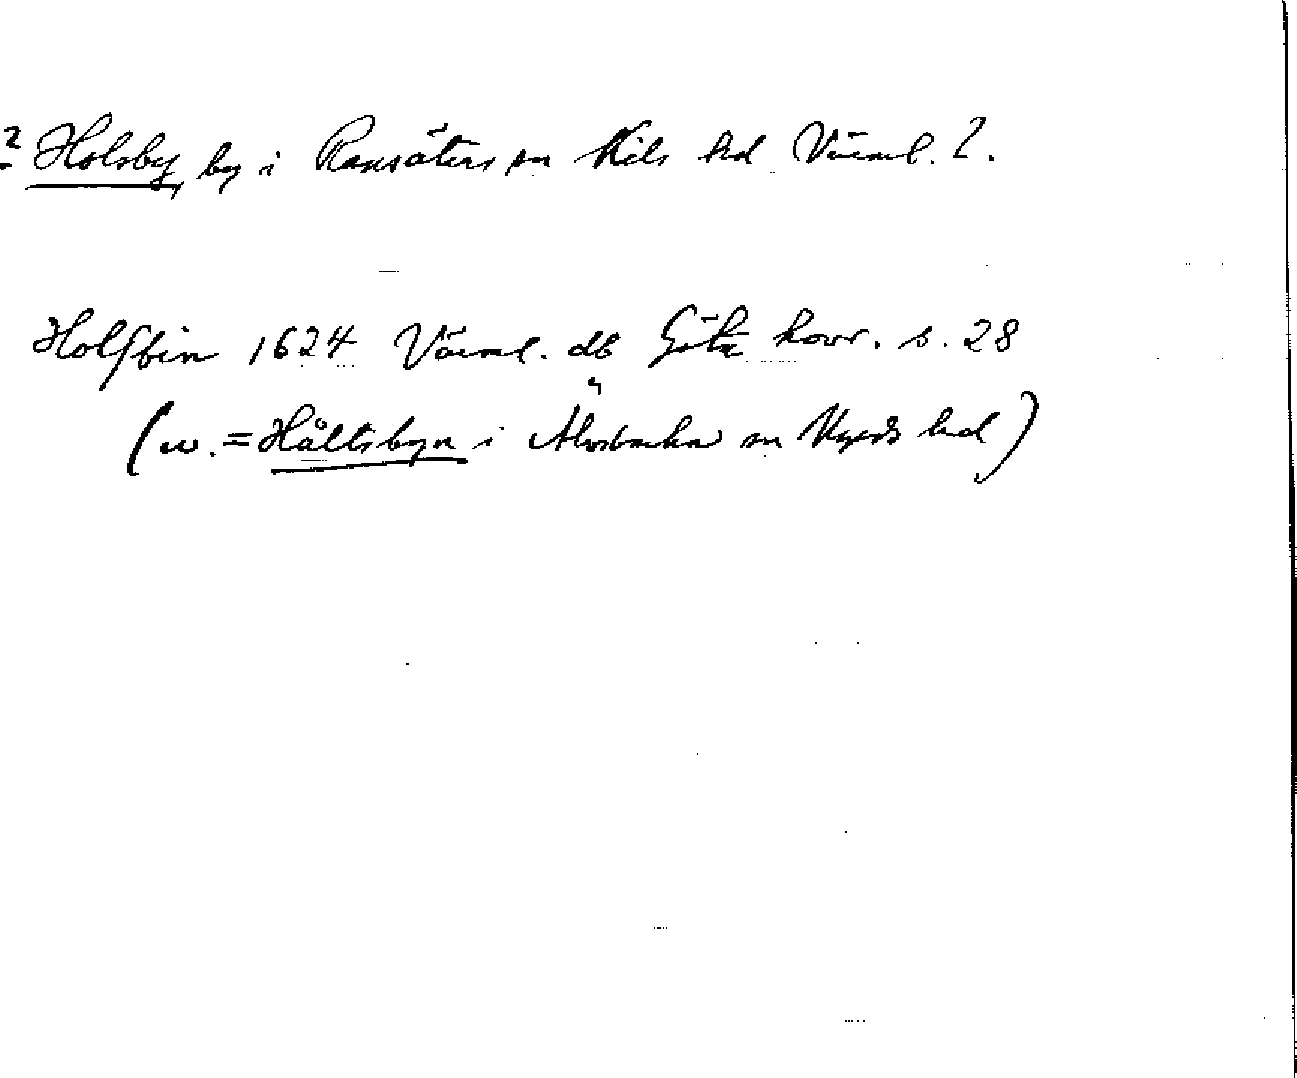 ? Holsby, by i Ransäters sn Kils hd Värml. ?.
Holsbin 1624 Värml. db Göta hovr. s. 28
(u. = Hältsbyn i Älvsbacka sn Nyeds hd)